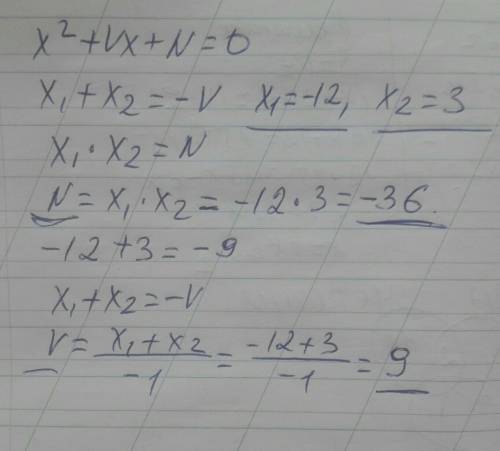 x² + Vx + N = 0
x₁ + x₂ = -V   x₁ = -12,   x₂ = 3
x₁ · x₂ = N
N = x₁ · x₂ = -12 · 3 = -36.
-12 + 3 = -9
x₁ + x₂ = -V
V = (x₁ + x₂)/-1 = (-12 + 3)/-1 = 9